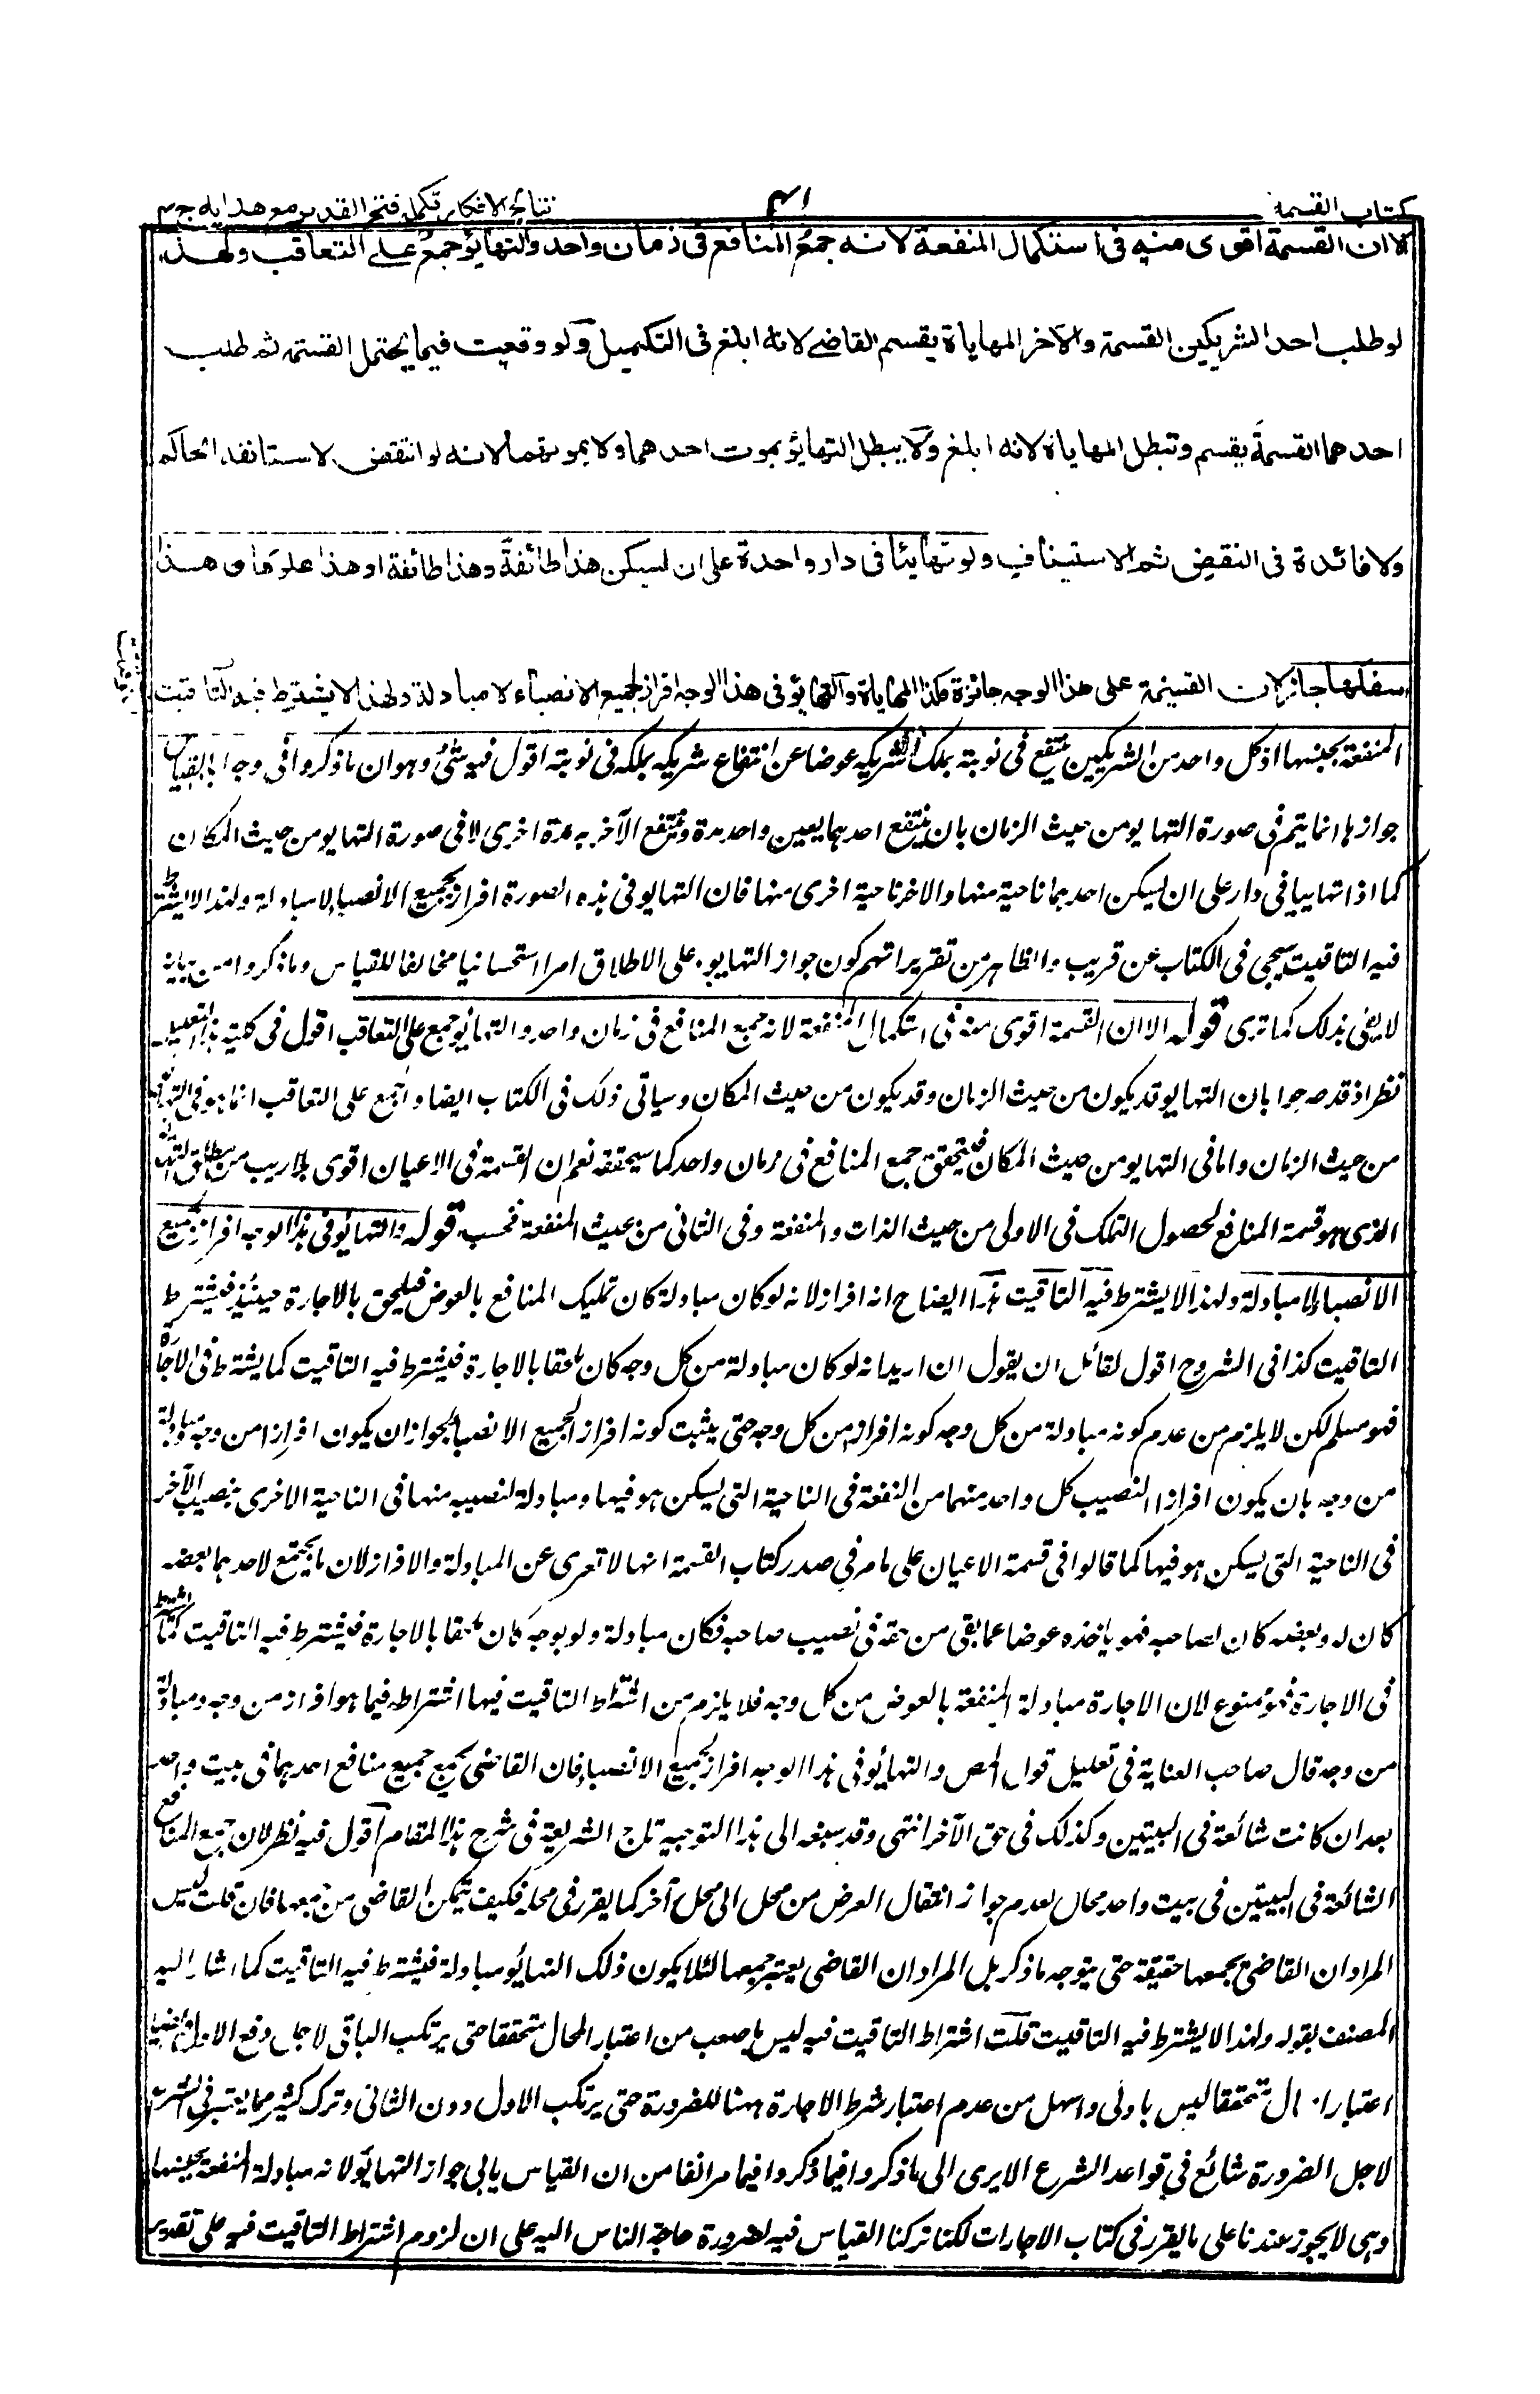 كتاب القسمة
٤١
نتائج الافكار تكملة فتح القدير مع هدايه ج ٤
الا ان القسمة اقوى منه فى استكمال المنفعة لانه جمع المنافع فى زمان واحد والتهايؤ جمع على التعاقب ولهذا
لو طلب احد الشريكين القسمة والآخر المهاياة يقسم القاضى لانه ابلغ فى التكميل ولو وقعت فيما يحتمل القسمة ثم طلب
احدهما القسمة يقسم وتبطل المهاياة لانه ابلغ ولا يبطل التهايؤ بموت احدهما ولا بموتهما لانه لو انتقض لاستانفه الحاكم
ولا فائدة فى النقض ثم الاستيناف ولو تهايئا فى دار واحدة على ان يسكن هذا طائفة وهذا طائفة او هذا علوها وهذا
سفلها جاز لان القسمة على هذا الوجه جائزة فكذا المهاياة والتهايؤ فى هذا الوجه افراز لجميع الانصباء لا مبادلة ولهذا لا يشترط فيه التاقيت
المنفعة بجنسها اذ كل واحد من الشريكين ينتفع فى نوبته بملك الشريك عوضا عن انتفاع شريكه بملكه فى نوبته اقول فيه شئ وهو ان ما ذكروا فى وجه اباء القياس
جوازها انما يتم فى صورة التهايؤ من حيث الزمان بان ينتفع احدهما بعين واحد مدة وينتفع الآخر به مدة اخرى لا فى صورة التهايؤ من حيث المكان
كما اذا تهاييا فى دار على ان يسكن احدهما ناحية منها والاخر ناحية اخرى منها فان التهايؤ فى هذه الصورة افراز لجميع الانصباء لا مبادلة ولهذا لا يشترط
فيه التاقيت سيجى فى الكتاب عن قريب والظاهر من تقريراتهم كون جواز التهايؤ على الاطلاق امرا استحسانيا مخالفا للقياس وما ذكروا من بيانه
لا يفى بذلك كما ترى قوله الا ان القسمة اقوى منه فى استكمال المنفعة لانه جمع المنافع فى زمان واحد والتهايؤ جمع على التعاقب اقول فى كلية هذا التعليل
نظر اذ قد صرحوا بان التهايؤ قد يكون من حيث الزمان وقد يكون من حيث المكان وسياتى ذلك فى الكتاب ايضا والجمع على التعاقب انما هو فى التهايؤ
من حيث الزمان واما فى التهايؤ من حيث المكان فيتحقق جمع المنافع فى زمان واحد كما سيحققه نعم ان القسمة فى الاعيان اقوى بلا ريب من مطلق التهايؤ
الذى هو قسمة المنافع لحصول التملك فى الاولى من حيث الذات والمنفعة وفى الثانى من حيث المنفعة فحسب قوله والتهايؤ فى هذا الوجه افراز لجميع
الانصباء لا مبادلة ولهذا لا يشترط فيه التاقيت هذا ايضاح انه افراز لانه لو كان مبادلة كان تمليك المنافع بالعوض فيلحق بالاجارة حينئذ فيشترط
التاقيت كذا فى الشروح اقول لقائل ان يقول ان اريد انه لو كان مبادلة من كل وجه كان ملحقا بالاجارة فيشترط فيه التاقيت كما يشترط فى الاجارة
فهو مسلم لكن لا يلزم من عدم كونه مبادلة من كل وجه كونه افرازا من كل وجه حتى يثبت كونه افراز الجميع الانصباء لجواز ان يكون افرازا من وجه ومبادلة
من وجه بان يكون افرازا لنصيب كل واحد منهما من المنفعة فى الناحية التى يسكن هو فيها ومبادلة لنصيبه منها فى الناحية الاخرى بنصيب الآخر
فى الناحية التى يسكن هو فيها كما قالوا فى قسمة الاعيان على ما مر فى صدر كتاب القسمة انها لا تعرى عن المبادلة والافراز لان ما يجتمع لاحدهما بعضه
كان له وبعضه كان لصاحبه فهو ياخذه عوضا عما بقى من حقه فى نصيب صاحبه فكان مبادلة ولو بوجه كان ملحقا بالاجارة فيشترط فيه التاقيت كما يشترط
فى الاجارة فهو ممنوع لان الاجارة مبادلة المنفعة بالعوض من كل وجه فلا يلزم من اشتراط التاقيت فيها اشتراطه فيما هو افراز من وجه ومبادلة
من وجه قال صاحب العناية فى تعليل قول المص والتهايؤ فى هذا الوجه افراز لجميع الانصباء فان القاضى يجمع جميع منافع احدهما فى بيت واحد
بعد ان كانت شائعة فى البيتين وكذلك فى حق الآخر انتهى وقد سبقه الى هذا التوجيه تاج الشريعة فى شرح هذا المقام اقول فيه نظر لان جمع المنافع
الشائعة فى البيتين فى بيت واحد محال لعدم جواز انتقال العرض من محل الى محل آخر كما يقرر فى محله فكيف يتمكن القاضى من جمعها فان قلت ليس
المراد ان القاضى يجمعها حقيقة حتى يتوجه ما ذكر بل المراد ان القاضى يعتبر جمعها لئلا يكون ذلك التهايؤ مبادلة فيشترط فيه التاقيت كما اشار اليه
المصنف بقوله ولهذا لا يشترط فيه التاقيت قلت اشتراط التاقيت فيه ليس باصعب من اعتبار المحال متحققا حتى يرتكب الباقى لاجل دفع الاول
اعتبار المحال متحققا ليس باولى واسهل من عدم اعتبار شرط الاجارة ههنا للضرورة حتى يرتكب الاول دون الثانى وترك كثير مما يعتبر فى الشرع
لاجل الضرورة شائع فى قواعد الشرع الا يرى الى ما ذكروا فيما ذكروا فيما مر انفا من ان القياس يابى جواز التهايؤ لانه مبادلة المنفعة بجنسها
وهى لا يجوز عندنا على ما يقرر فى كتاب الاجارات لكنا تركنا القياس فيه لضرورة حاجة الناس اليه على ان لزوم اشتراط التاقيت فيه على تقدير